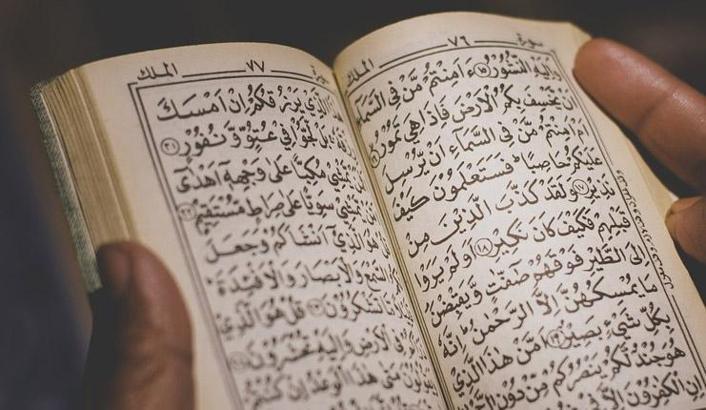 سورة ٧٦ الملك
وَاِلَيْهِ النُّشُوْرُ ١٥ ءَاَمِنْتُمْ مَّنْ فِي السَّمَآءِ
اَنْ يَّخْسِفَ بِكُمُ الْاَرْضَ فَاِذَا هِيَ تَمُوْرُ
اَمْ اَمِنْتُمْ مَّنْ فِي السَّمَآءِ اَنْ يُّرْسِلَ
عَلَيْكُمْ حَاصِبًا فَسَتَعْلَمُوْنَ كَيْفَ
نَذِيْرِ ١٧ وَلَقَدْ كَذَّبَ الَّذِيْنَ مِنْ
قَبْلِهِمْ فَكَيْفَ كَانَ نَكِيْرِ ١٨ اَوَلَمْ يَرَوْا
اِلَى الطَّيْرِ فَوْقَهُمْ صٰٓفّٰتٍ وَّيَقْبِضْنَ
مَا يُمْسِكُهُنَّ اِلَّا الرَّحْمٰنُ اِنَّهٗ
بِكُلِّ شَيْءٍ بَصِيْرٌ ١٩ اَمَّنْ هٰذَا الَّذِيْ
هُوَ جُنْدٌ لَّكُمْ يَنْصُرُكُمْ مِّنْ دُوْنِ
اِنِ الْكٰفِرُوْنَ اِلَّا
٧٧ الملك
الَّذِيْ يَرْزُقُكُمْ اِنْ اَمْسَكَ
بَلْ لَّجُّوْا فِيْ عُتُوٍّ وَّنُفُوْرٍ ٢١
يَّمْشِيْ مُكِبًّا عَلٰى وَجْهِهٖٓ اَهْدٰٓى
يَّمْشِيْ سَوِيًّا عَلٰى صِرَاطٍ مُّسْتَقِيْمٍ ٢٢
هُوَ الَّذِيْٓ اَنْشَاَكُمْ وَجَعَلَ
السَّمْعَ وَالْاَبْصَارَ وَالْاَفْـِٕدَةَ
مَّا تَشْكُرُوْنَ ٢٣ قُلْ هُوَ الَّذِيْ
فِي الْاَرْضِ وَاِلَيْهِ تُحْشَرُوْنَ ٢٤
مَتٰى هٰذَا الْوَعْدُ اِنْ كُنْتُمْ